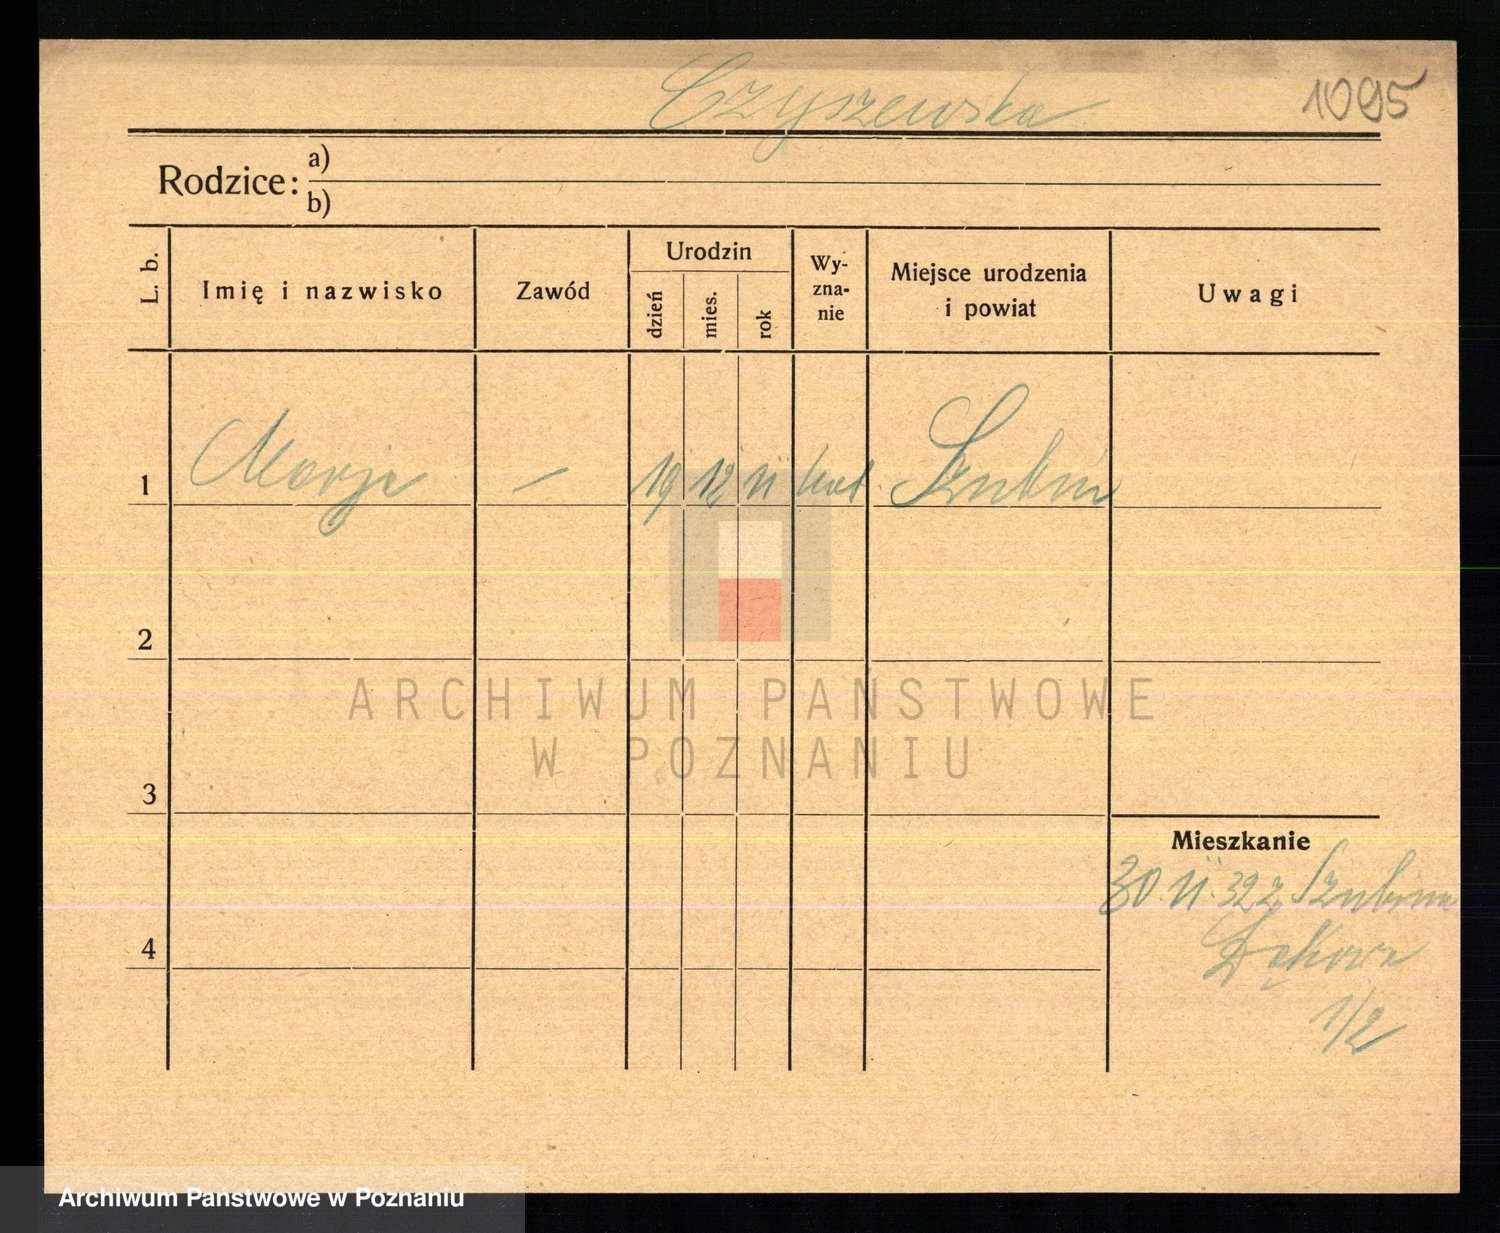 Czyszewska
1095
Rodzice:
a)
b)
L. b.
Imię i nazwisko
Zawód
Urodzin
dzień
mies.
rok
Wy-
zna-
nie
Miejsce urodzenia
i powiat
Uwagi
1 Marja — 19 12 11 kat. Szubin
2
3
4
Mieszkanie
30.11.32 z Szubina
1/2
ARCHIWUM PAŃSTWOWE
W POZNANIU
Archiwum Państwowe w Poznaniu